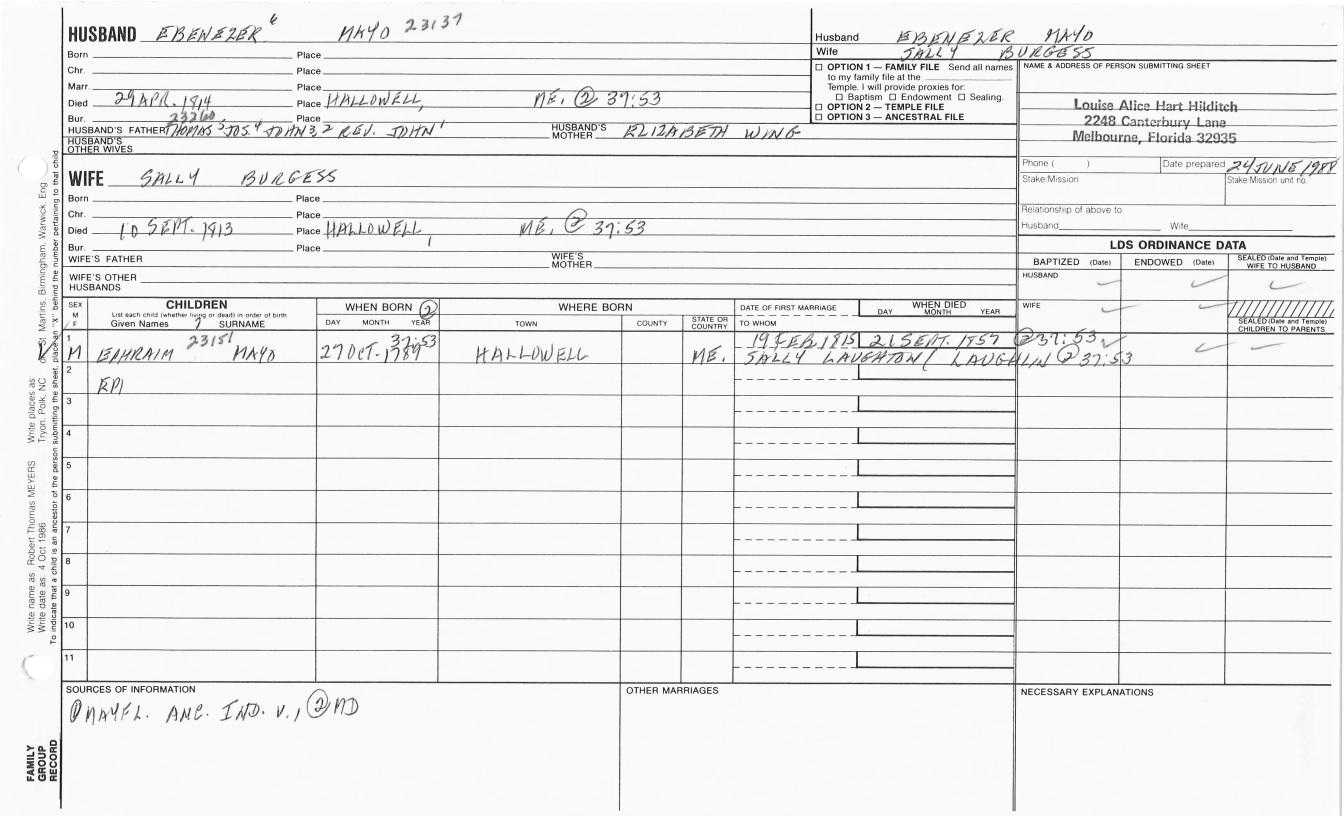 HUSBAND EBENEZER 6 MAYO 23137
Born Place
Chr. Place
Marr Place
Died 29 APR. 1814 Place HALLOWELL, ME, ② 37:53
Bur. 23260 Place
HUSBAND'S FATHER THOMAS 5 JOS. 4 JOHN 3, 2 REV. JOHN 1 HUSBAND'S MOTHER ELIZABETH WING
HUSBAND'S OTHER WIVES
WIFE SALLY BURGESS
Born Place
Chr. Place
Died 10 SEPT. 1813 Place HALLOWELL, ME, ② 37:53
Bur. Place
WIFE'S FATHER WIFE'S MOTHER
WIFE'S OTHER HUSBANDS
Husband EBENEZER MAYO
Wife SALLY BURGESS
☐ OPTION 1 — FAMILY FILE Send all names
to my family file at the
Temple. I will provide proxies for:
☐ Baptism ☐ Endowment ☐ Sealing.
☐ OPTION 2 — TEMPLE FILE
☐ OPTION 3 — ANCESTRAL FILE
NAME & ADDRESS OF PERSON SUBMITTING SHEET
Louise Alice Hart Hilditch
2248 Canterbury Lane
Melbourne, Florida 32935
Phone ( ) Date prepared 24 JUNE 1988
Stake/Mission Stake/Mission unit no.
Relationship of above to
Husband Wife
LDS ORDINANCE DATA
BAPTIZED (Date) ENDOWED (Date) SEALED (Date and Temple) WIFE TO HUSBAND
HUSBAND ✓ ✓ ✓
WIFE ✓ ✓
SEALED (Date and Temple) CHILDREN TO PARENTS
SEX M / F
CHILDREN
List each child (whether living or dead) in order of birth
Given Names 7 SURNAME
WHEN BORN ②
DAY MONTH YEAR
WHERE BORN
TOWN COUNTY STATE OR COUNTRY
DATE OF FIRST MARRIAGE
TO WHOM
WHEN DIED
DAY MONTH YEAR
1 23151 37:53 19 FEB. 1815 21 SEPT. 1857 ② 37:53 ✓
M EPHRAIM MAYO 27 OCT. 1789 HALLOWELL ME. SALLY LAUGHTON/ LAUGHLIN ② 37:53 ✓ ✓
2
3
4
5
6
7
8
9
10
11
SOURCES OF INFORMATION
① MAYFL. ANC. IND. V., ② MD
OTHER MARRIAGES
NECESSARY EXPLANATIONS
Write name as Robert Thomas MEYERS Write places as St. Martins, Birmingham, Warwick, Eng
Write date as 4 Oct 1986 Tryon, Polk, NC
To indicate that a child is an ancestor of the person submitting the sheet, place an "X" behind the number pertaining to that child
FAMILY
GROUP
RECORD